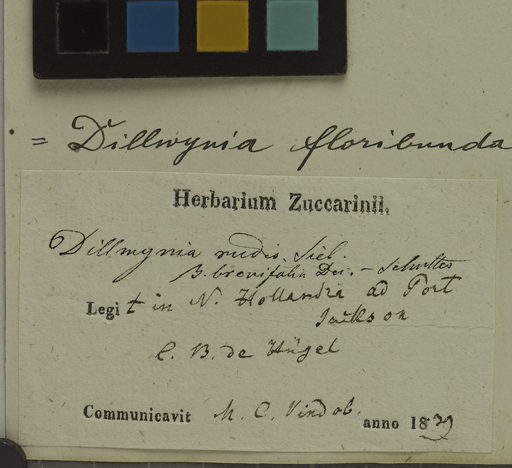 = Dillwynia floribunda
Herbarium Zuccarinii.
Dillwynia rudis. Sieb.
B. brevifolia Dec. -
Legit in N. Hollandia ad Port
Jackson
C. B. de Hügel
Communicavit M. C. Vindob. anno 1839